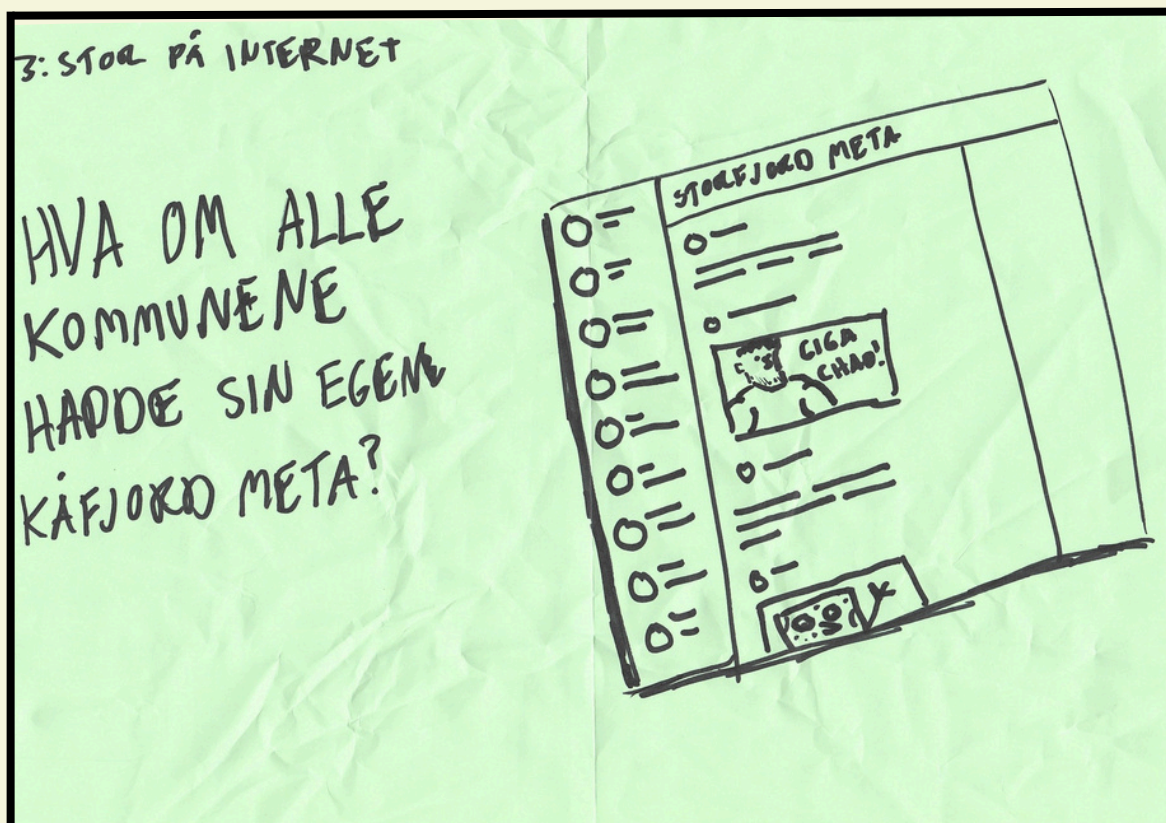 3: STOR PÅ INTERNET
HVA OM ALLE
KOMMUNENE
HADDE SIN EGEN
KÅFJORD META?
STORFJORD META
GIGA
CHAD!